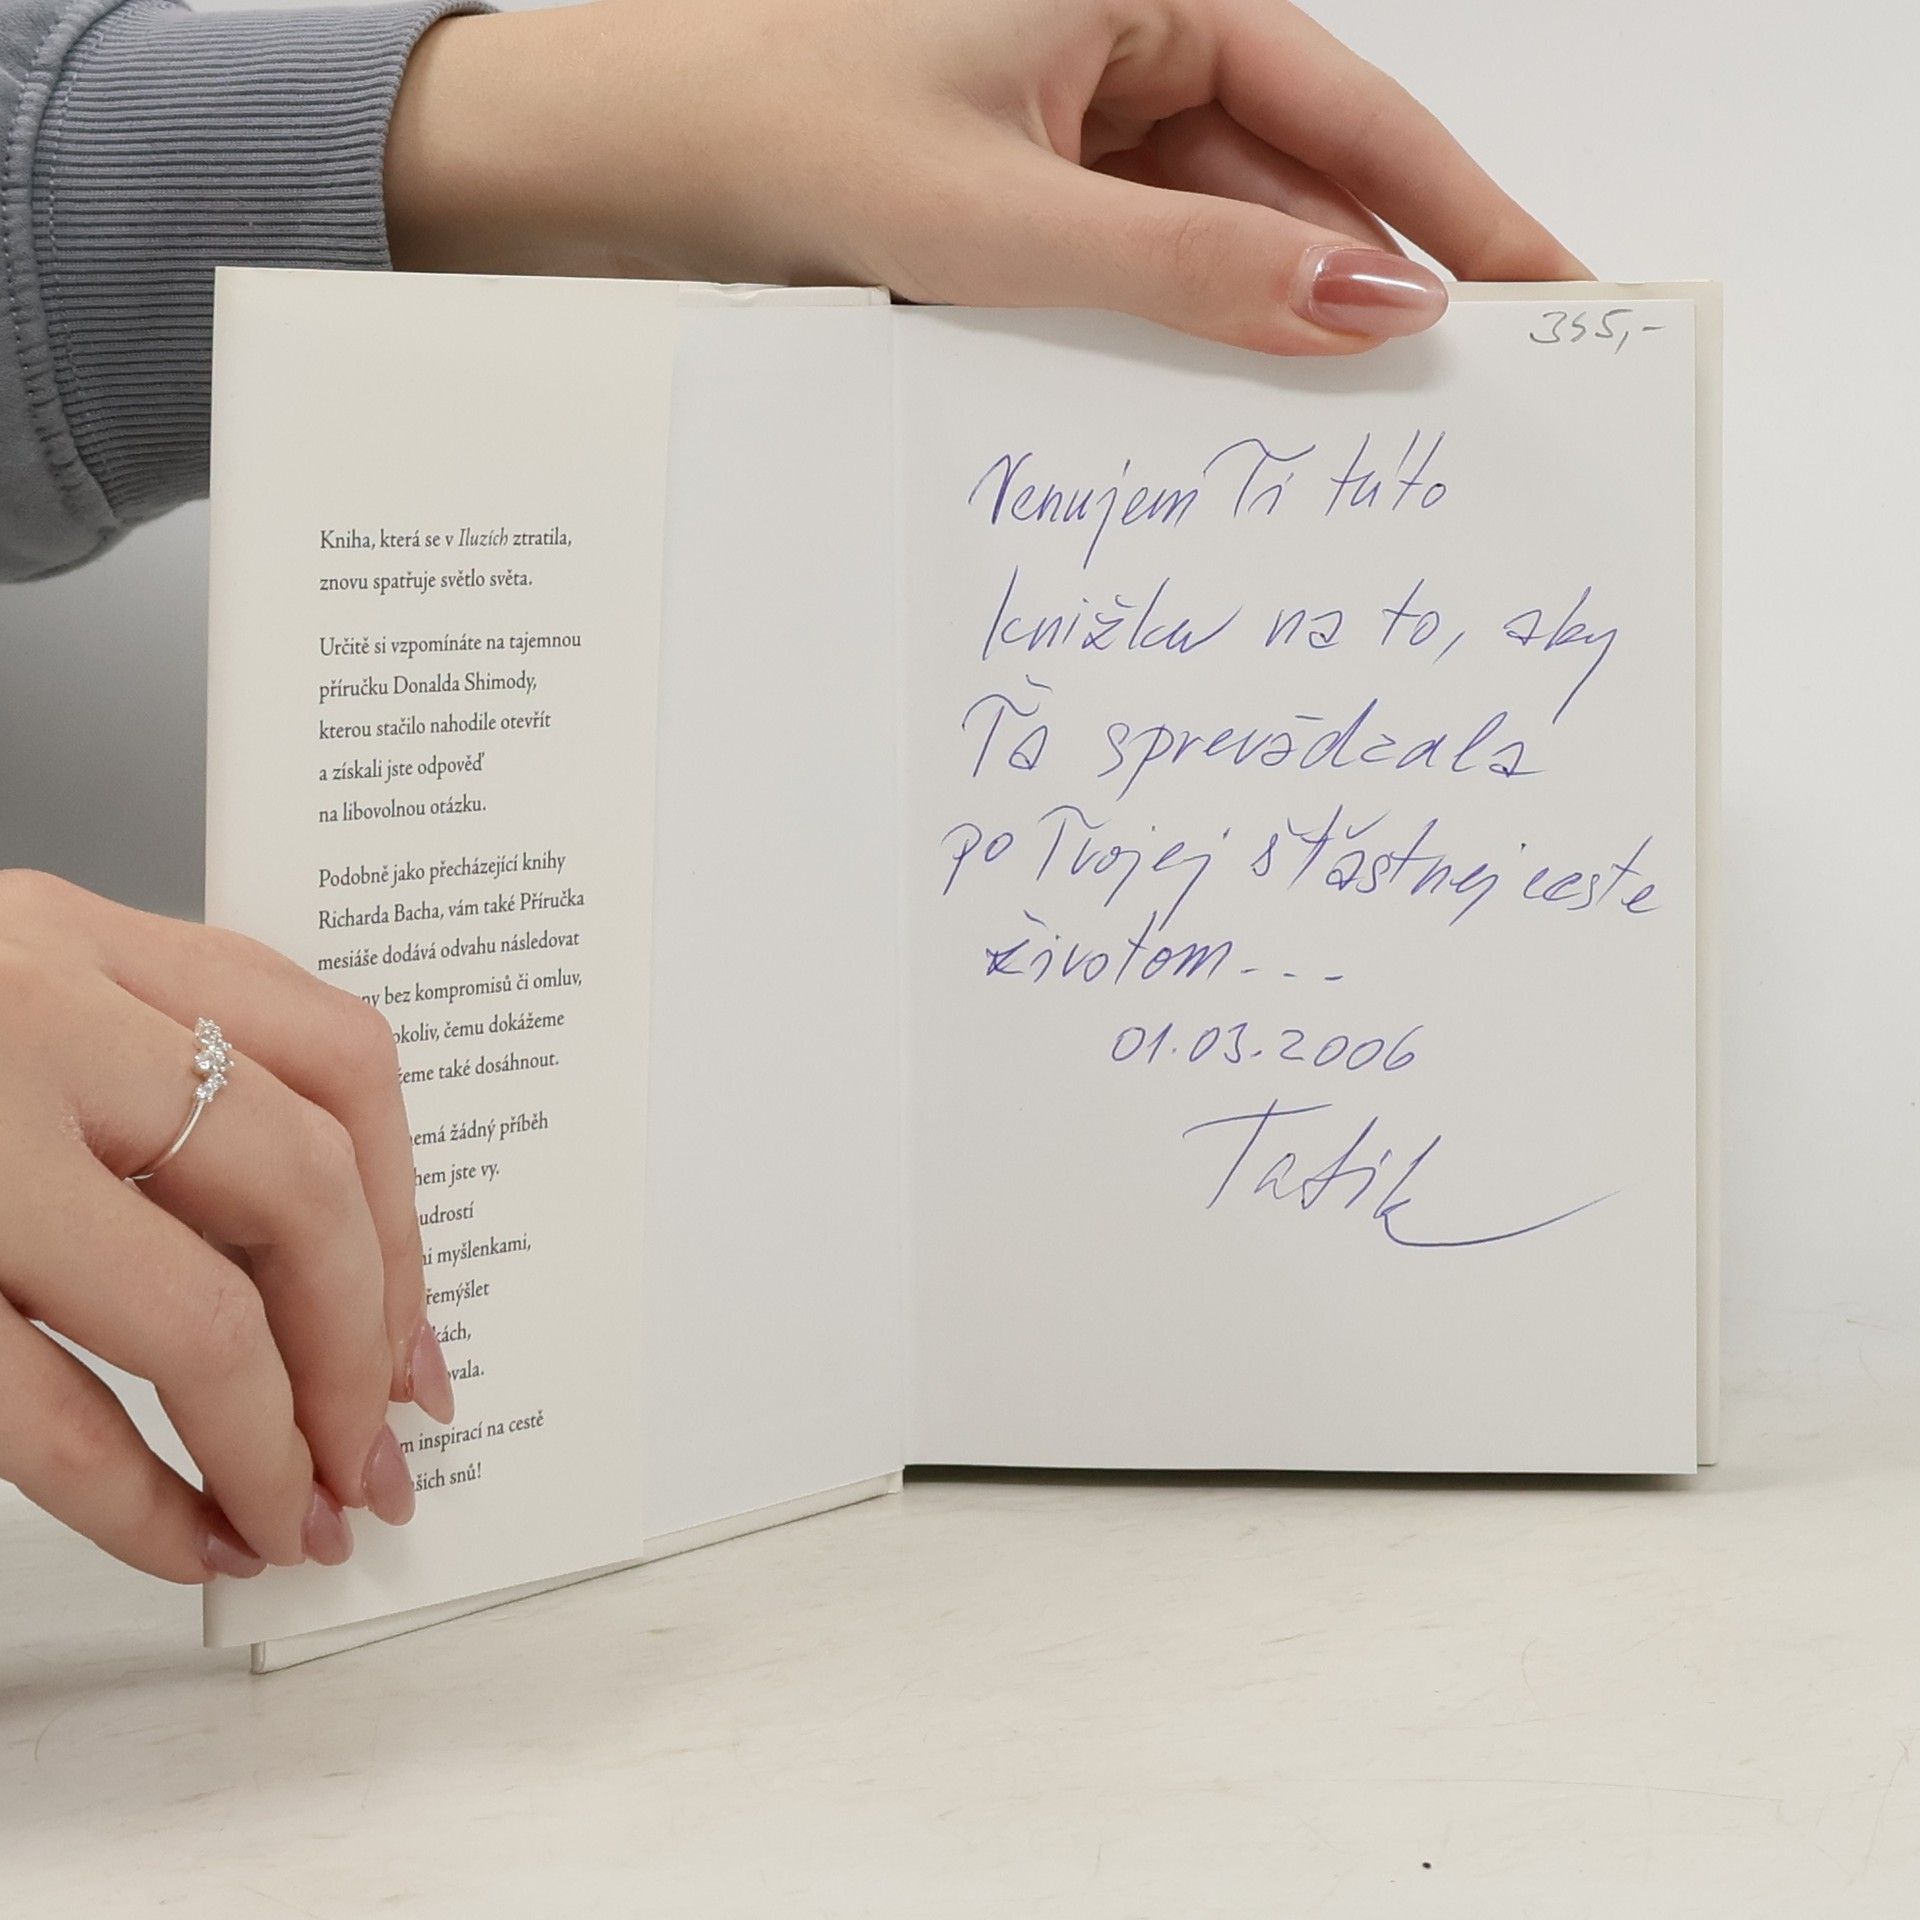 Kniha, která se v Iluzích ztratila,
znovu spatřuje světlo světa.
Určitě si vzpomínáte na tajemnou
příručku Donalda Shimody,
kterou stačilo nahodile otevřít
a získali jste odpověď
na libovolnou otázku.
Podobně jako přecházející knihy
Richarda Bacha, vám také Příručka
mesiáše dodává odvahu následovat
ny bez kompromisů či omluv,
okoliv, čemu dokážeme
žeme také dosáhnout.
nemá žádný příběh
hem jste vy.
udrostí
ni myšlenkami,
řemýšlet
kách,
ovala.
m inspirací na cestě
ašich snů!
395,-
Venujem Ti túto
knižku na to, aby
Ťa sprevádzala
po Tvojej šťastnej ceste
životom---
01.03.2006
Tatik